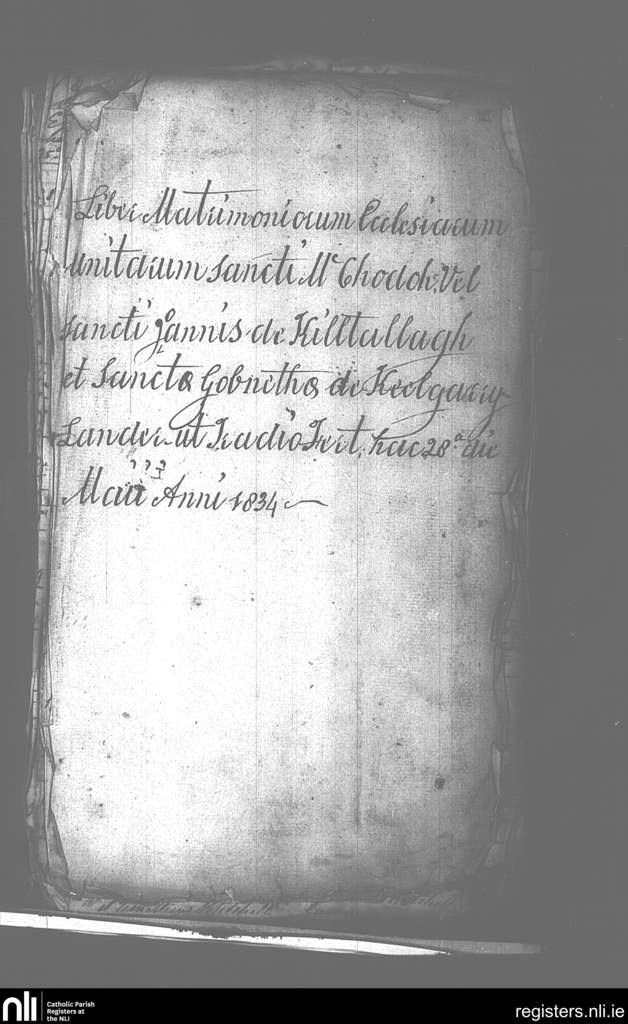 Liber Matrimoniorum Ecclesiarum
Unitarum Sancti Mc Chodoh, Vel
Sancti Joannis de Killtallagh
et Sanctæ Gobnethæ de Keelgarry
Lander ut Tradio Fert, hac 28ª die
Maii Anni 1834
nli
Catholic Parish
Registers at
the NLI
registers.nli.ie